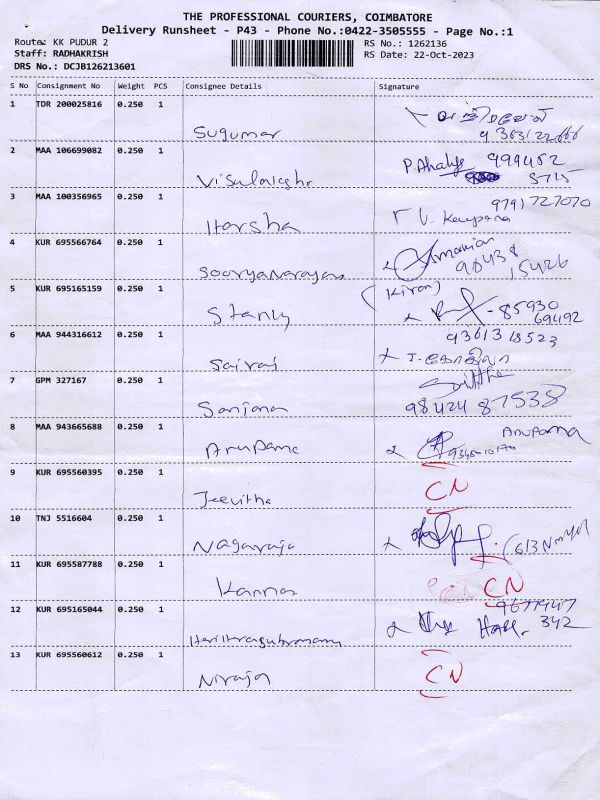 THE PROFESSIONAL COURIERS, COIMBATORE
Delivery Runsheet - P43 - Phone No.:0422-3505555 - Page No.:1
Route: KK PUDUR 2 RS No.: 1262136
Staff: RADHAKRISH RS Date: 22-Oct-2023
DRS No.: DCJB126213601
S No Consignment No Weight PCS Consignee Details Signature
1 TDR 200025816 0.250 1
Sugumar
2 MAA 106699082 0.250 1 P. Ahalya 999402
5715
3 MAA 100356965 0.250 1 9791727070
Harsha
4 KUR 695566764 0.250 1
98438
Sooryanarayan 15426
5 KUR 695165159 0.250 1 (Kiran)
85930
Stanly 69492
6 MAA 944316612 0.250 1 9361318523
Sairaj
7 GPM 327167 0.250 1
Sanjana 98424 87538
8 MAA 943665688 0.250 1 Anupama
Anupama
9 KUR 695560395 0.250 1 CN
Jeevitha
10 TNJ 5516604 0.250 1
Nagaraja
11 KUR 695587788 0.250 1 CN
Kannan
12 KUR 695165044 0.250 1
342
Hariharasubramani
13 KUR 695560612 0.250 1 CN
Niraja